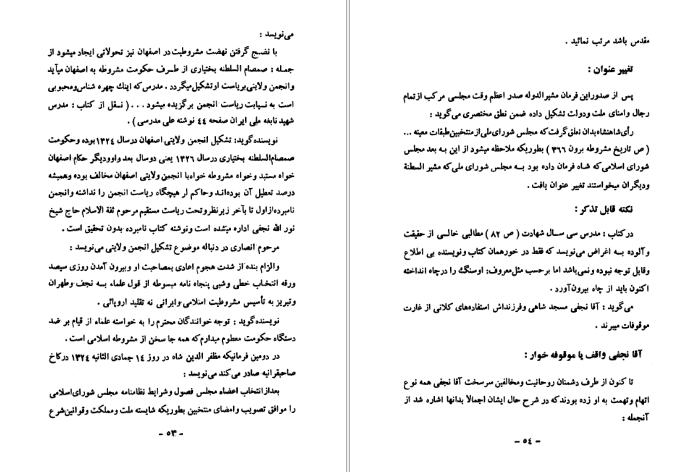 می‌نویسد :
با نضج گرفتن نهضت مشروطیت در اصفهان نیز تحولاتی ایجاد میشود از
جمله : صمصام السلطنه بختیاری از طرف حکومت مشروطه به اصفهان میآید
وانجمن ولایتی بریاست او تشکیل میگردد . مدرس که اینک چهره شناس ومحبوبی
است به نیابت ریاست انجمن برگزیده میشود . . . ( نقل از کتاب : مدرس
شهید نابغه ملی ایران صفحه ۴۴ نوشته علی مدرسی ) .
نویسنده گوید: تشکیل انجمن ولایتی اصفهان درسال ۱۳۲۴ بوده وحکومت
صمصام السلطنه بختیاری درسال ۱۳۲۶ یعنی دوسال بعد واو ودیگر حکام اصفهان
خواه مستبد وخواه مشروطه خواه با انجمن ولایتی اصفهان مخالف بوده وهمیشه
درصدد تعطیل آن بوده‌اند وحاکم ار هیچگاه ریاست انجمن را نداشته وانجمن
نامبرده از اول تا بآخر زیرنظر وتحت ریاست مستقیم مرحوم ثقة الاسلام حاج شیخ
نور الله نجفی اداره میشده است ونوشته کتاب نامبرده بدون تحقیق است .
مرحوم انصاری در دنباله موضوع تشکیل انجمن ولایتی می‌نویسد :
والزام بنده از شدت هجوم اعادی بمصاحبت او وبیرون آمدن روزی سیصد
ورقه انتخاب خطی وشبی پنجاه نامه مبسوطه از قول علماء بـه نجف وطهران
وتبریز به تأسیس مشروطیت اسلامی وایرانی نه تقلید اروپائی .
نویسنده گوید : توجه خوانندگان محترم را به خواسته علماء از قیام بر ضد
دستگاه حکومت معطوم میدارم که همه جا سخن از مشروطه اسلامی است .
در دومین فرمانیکه مظفر الدین شاه در روز ۱۴ جمادی الثانیه ۱۳۲۴ در کاخ
صاحبقرانیه صادر می کند می‌نویسد :
بعد از انتخاب اعضاء مجلس فصول وشرایط نظامنامه مجلس شورای اسلامی
را موافق تصویب وامضای منتخبین بطوریکه شایسته ملت ومملکت وقوانین شرع
- ۵۳ -
مقدس باشد مرتب نمائید .
تغییر عنوان :
پس از صدور این فرمان مشیر الدوله صدر اعظم وقت مجلسی مرکب از تمام
رجال وامنای ملت ودولت تشکیل داده ضمن نطق مختصری می گوید :
رأی شاهنشاه بدان تعلق گرفت که مجلس شورای ملی از منتخبین طبقات معینه ...
( ص تاریخ مشروطه برون ۳۶۶ ) بطوریکه ملاحظه میشود از این بـه بعد مجلس
شورای اسلامی که شاه فرمان داده بود بـه مجلس شورای ملی که مشیر السلطنة
ودیگران میخواستند تغییر عنوان یافت .
نکته قابل تذکر :
در کتاب : مدرس سی سـال شهادت ( ص ۸۲ ) مطالبی خالـی از حقیقت
وآلوده بـه اغراض می‌نویسد که فقط در خورهمان کتاب ونویسنده بی اطلاع
وقابل توجه نبوده ونمی‌باشد اما برحسب مثل معروف: او سنگ را در چاه انداخته
اکنون باید از چاه بیرون آورد .
می‌گوید : آقا نجفی مسجد شاهی وفرزنداش استفاده‌های کلانی از غارت
موقوفات میبرند .
آقا نجفی واقف یا موقوفه خوار :
تا کنون از طرف دشمنان روحانیت ومخالفین سرسخت آقا نجفی همه نوع
اتهام وتهمت به او زده بودند که در شرح حال ایشان اجمالاً بدانها اشاره شد از
آنجمله :
- ۵۴ -